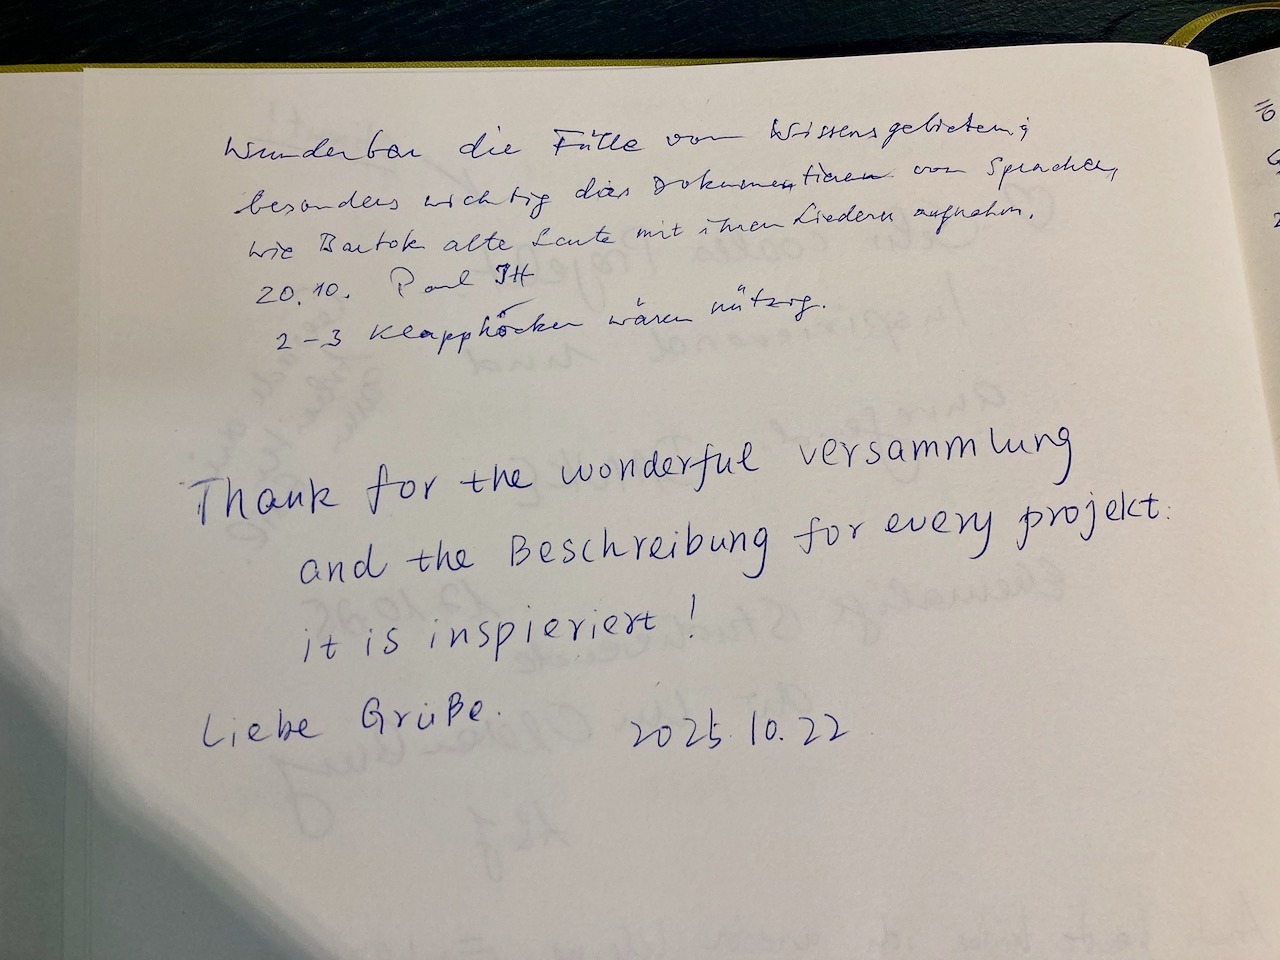 Wunderbar die Fülle von Wissensgebieten;
besonders wichtig das Dokumentieren von Sprachen,
wie Bartok alte Leute mit ihren Liedern aufnahm.
20.10. Paul JH
2-3 Klapphocker wären nützig.
Thank for the wonderful versammlung
and the Beschreibung for every projekt.
it is inspieriert!
Liebe Grüße.
2025.10.22